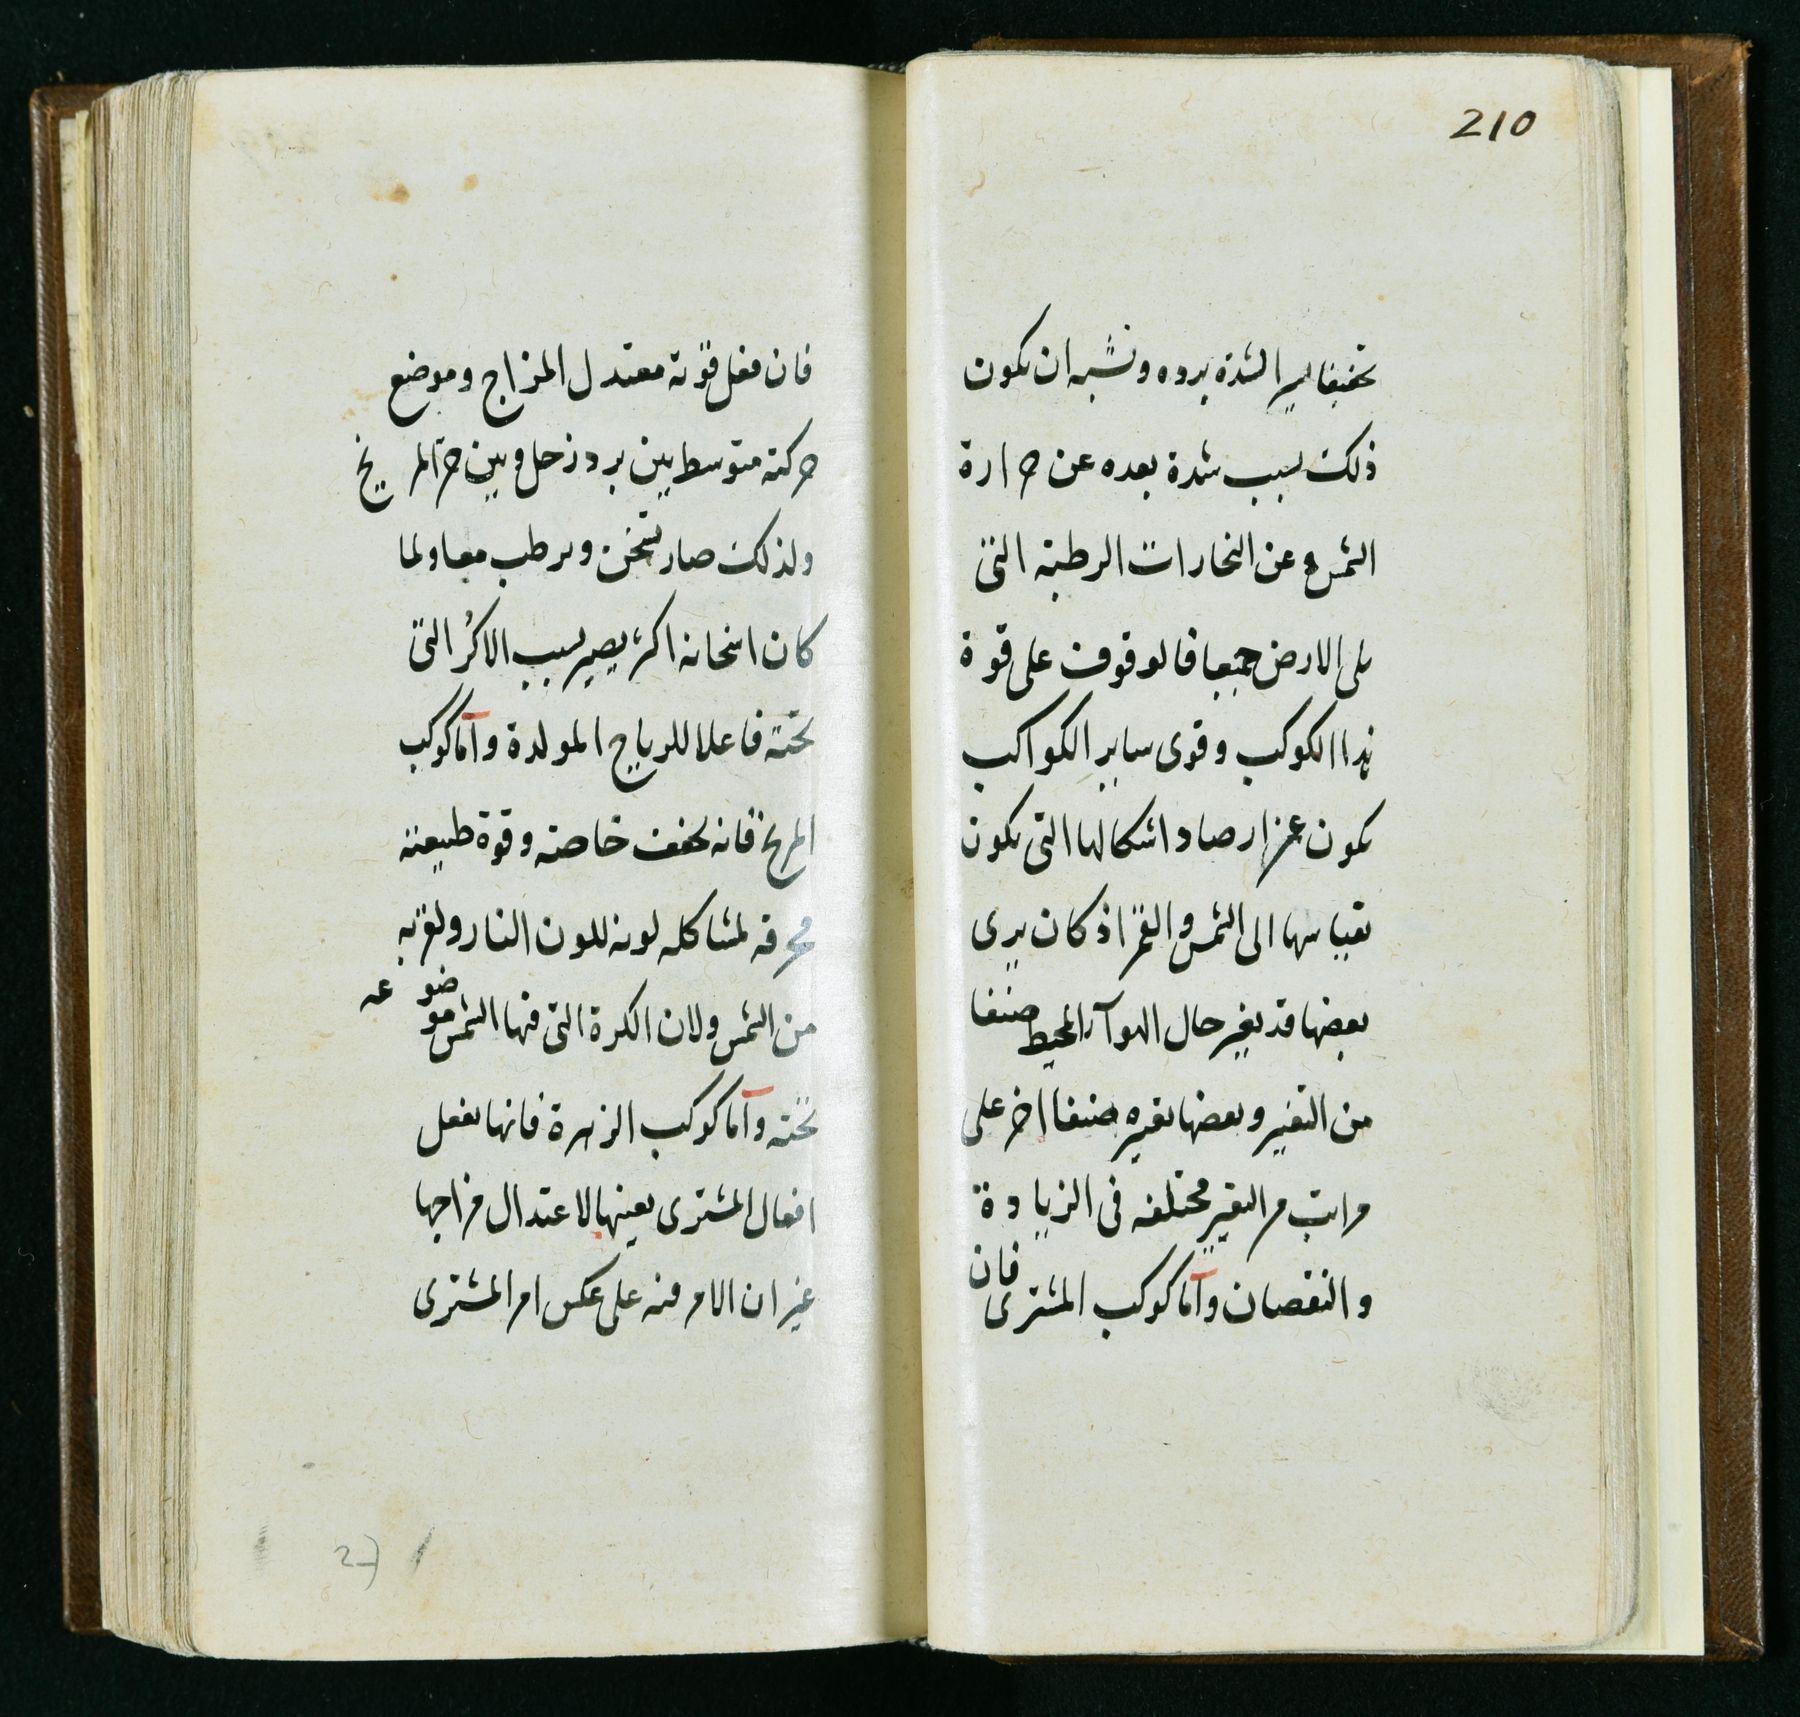 210
تخفيفا ليسير الشدة بروده ونشبه ان يكون
ذلك بسبب شدة بعده عن حرارة
الشمس و عن البخارات الرطبة التى
يلى الارض جميعا فالوقوف على قوة
هذا الكوكب وقوى ساير الكواكب
يكون عن ارصاد اشكالها التى يكون
بقياسها الى الشمس والقمر اذ كان يرى
بعضها قد يغير حال الهوآء المحيط صنفا
من التغير وبعضها يغيره صنفا اخر على
مراتب من التغير مختلفه فى الزيادة
والنقصان وآما كوكب المشترى فان
فان فعل قوته معتدل المزاج وموضع
حركته متوسط بين برد زحل وبين حر المريخ
ولذلك صار يسخن ويرطب معا ولما
كان اسخانه اكثر يصير بسبب الاكر التى
تحته فاعلا للرياح المولدة وآما كوكب
المريخ فانه يجفف خاصته وقوة طبيعته
محرقه لمشاكله لونه للون النار ولقربه
من الشمس ولان الكرة التى فيها الشمس موضوعه
تحته وآما كوكب الزهرة فانها يفعل
افعال المشترى بعينها لاعتدال مزاجها
غير ان الامر منه على عكس امر المشترى